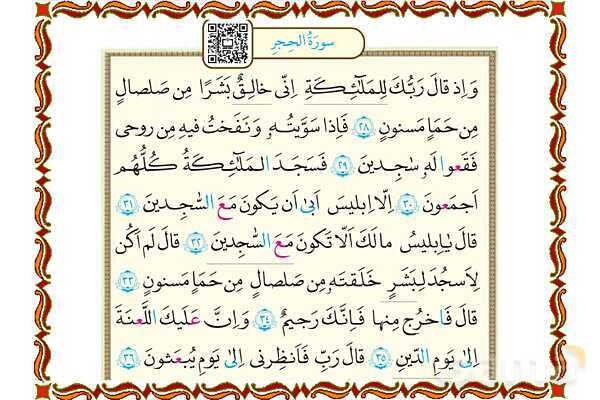 سورة الحجر
وَ اِذ قالَ رَبُّكَ لِلمَلٰٓئِكَةِ اِنّى خالِقٌ بَشَرًا مِن صَلصالٍ
مِن حَمَاٍ مَسنونٍ ٢٨ فَاِذا سَوَّيتُه وَ نَفَختُ فيهِ مِن روحى
فَقَعوا لَه سٰجِدينَ ٢٩ فَسَجَدَ المَلٰٓئِكَةُ كُلُّهُم
اَجمَعونَ ٣٠ اِلّا اِبليسَ اَبىٰ اَن يَكونَ مَعَ السّٰجِدينَ ٣١
قالَ يٰاِبليسُ ما لَكَ اَلّا تَكونَ مَعَ السّٰجِدينَ ٣٢ قالَ لَم اَكُن
لِاَسجُدَ لِبَشَرٍ خَلَقتَه مِن صَلصالٍ مِن حَمَاٍ مَسنونٍ ٣٣
قالَ فَاخرُج مِنها فَاِنَّكَ رَجيمٌ ٣٤ وَ اِنَّ عَلَيكَ اللَّعنَةَ
اِلىٰ يَومِ الدّينِ ٣٥ قالَ رَبِّ فَاَنظِرنى اِلىٰ يَومِ يُبعَثونَ ٣٦